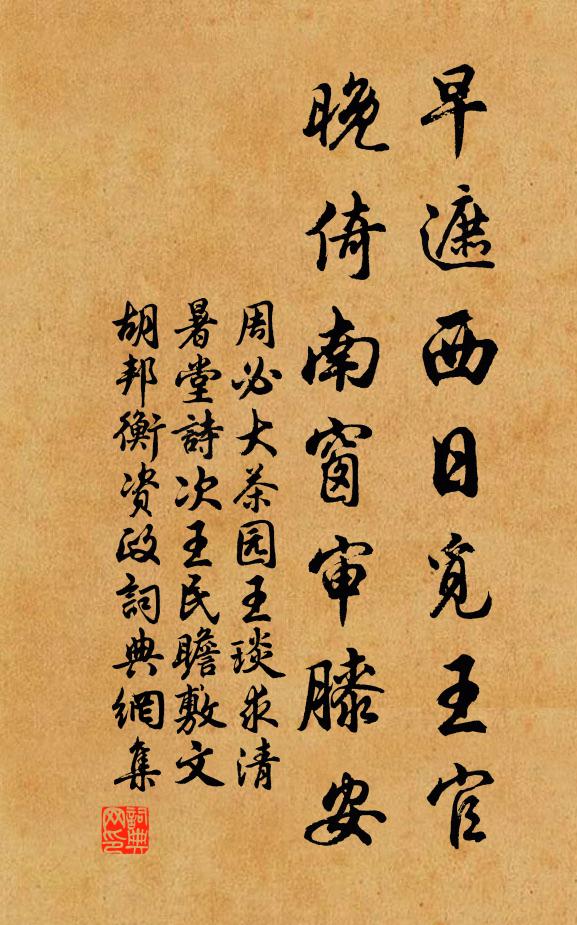 早遮西日覓王官
晚倚南窗审膝安
周必大茶园王琰求清
暑堂詩次王民瞻敷文
胡邦衡资政詞典網集
詞典网印